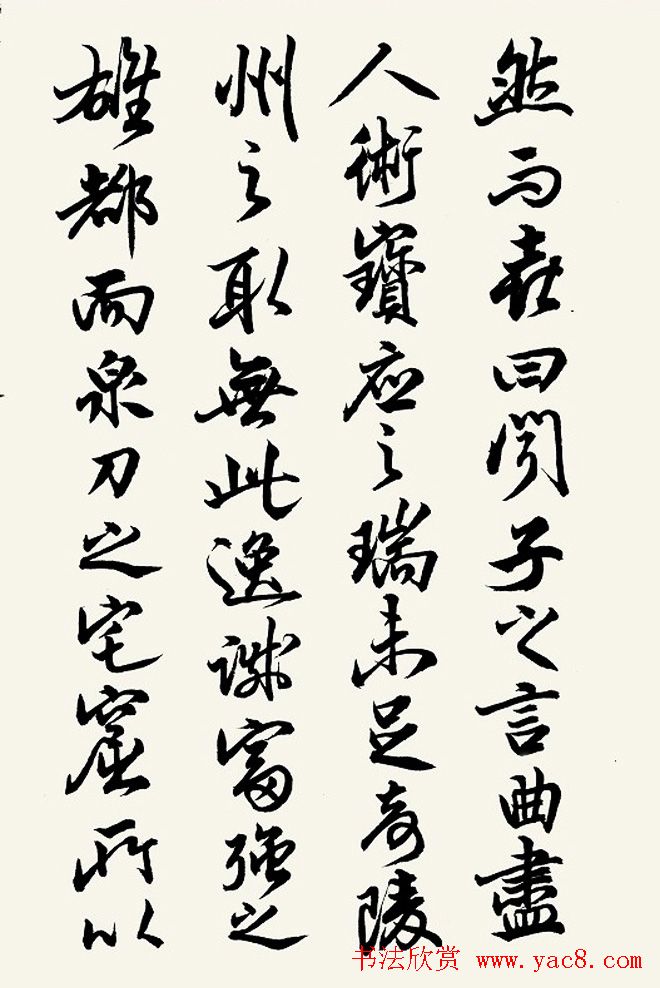 然而喜曰聞子之言曲盡
人術寶應之瑞未足奇陵
州之取無此逸誠富強之
雄都而泉刀之宅窟所以
书法欣赏 www.yac8.com